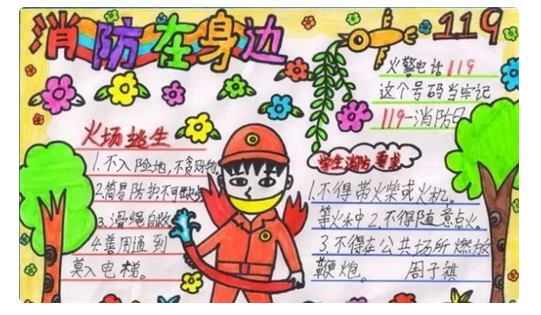 消防在身边
119
火警电话119
这个号码当牢记
119-消防日
火场逃生
1.不入险地,不贪财物
2.简易防护不可缺少
3.滑绳自救
4.善用通到
莫入电梯。
学生消防要求
1.不得带火柴或火机,
等火种2.不得随意点火。
3.不得在公共场所燃放
鞭炮。 周子祺